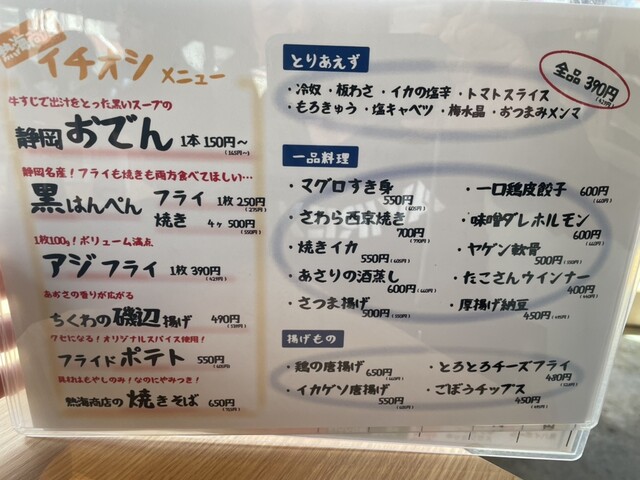 イチオシ メニュー
牛すじで出汁をとった黒いスープの
静岡おでん 1本 150円〜
(165円〜)
静岡名産!フライも焼きも両方食べてほしい…
黒はんぺん フライ 1枚 250円
(275円)
焼き 4ヶ 500円
(550円)
1枚100g!ボリューム満点
アジフライ 1枚 390円
(429円)
あおさの香りが広がる
ちくわの磯辺揚げ 490円
(539円)
クセになる!オリジナルスパイス使用!
フライドポテト 550円
(605円)
具材はもやしのみ!なのにやみつき!
熱海商店の焼きそば 650円
(715円)
とりあえず
全品390円
(429円)
・冷奴・板わさ・イカの塩辛・トマトスライス
・もろきゅう・塩キャベツ・梅水晶・おつまみメンマ
一品料理
・マグロすき身
550円(605円)
・さわら西京焼き
700円(770円)
・焼きイカ
550円(605円)
・あさりの酒蒸し
600円(660円)
・さつま揚げ
500円(550円)
・一口鶏皮餃子 600円
(660円)
・味噌ダレホルモン
600円(660円)
・ヤゲン軟骨
500円(550円)
・たこさんウインナー
400円(440円)
・厚揚げ納豆
450円(495円)
揚げもの
・鶏の唐揚げ
650円(715円)
・イカゲソ唐揚げ
550円(605円)
・とろとろチーズフライ
480円(528円)
・ごぼうチップス
450円(495円)